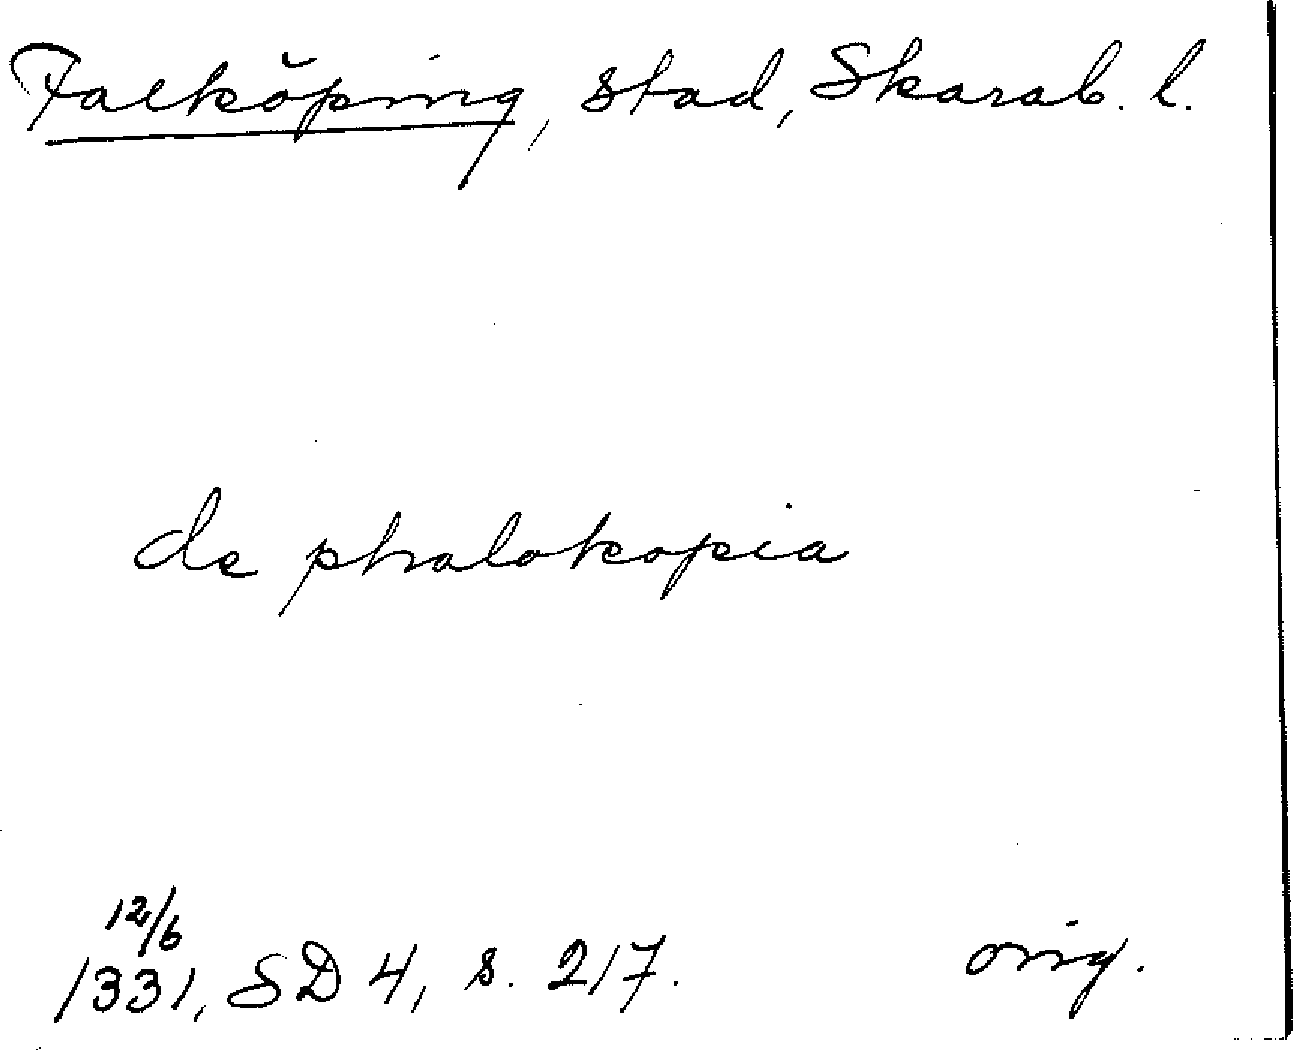 Falköping, stad, Skarab. l.
de phalokopia
12/6
1331, SD 4, s. 217. orig.